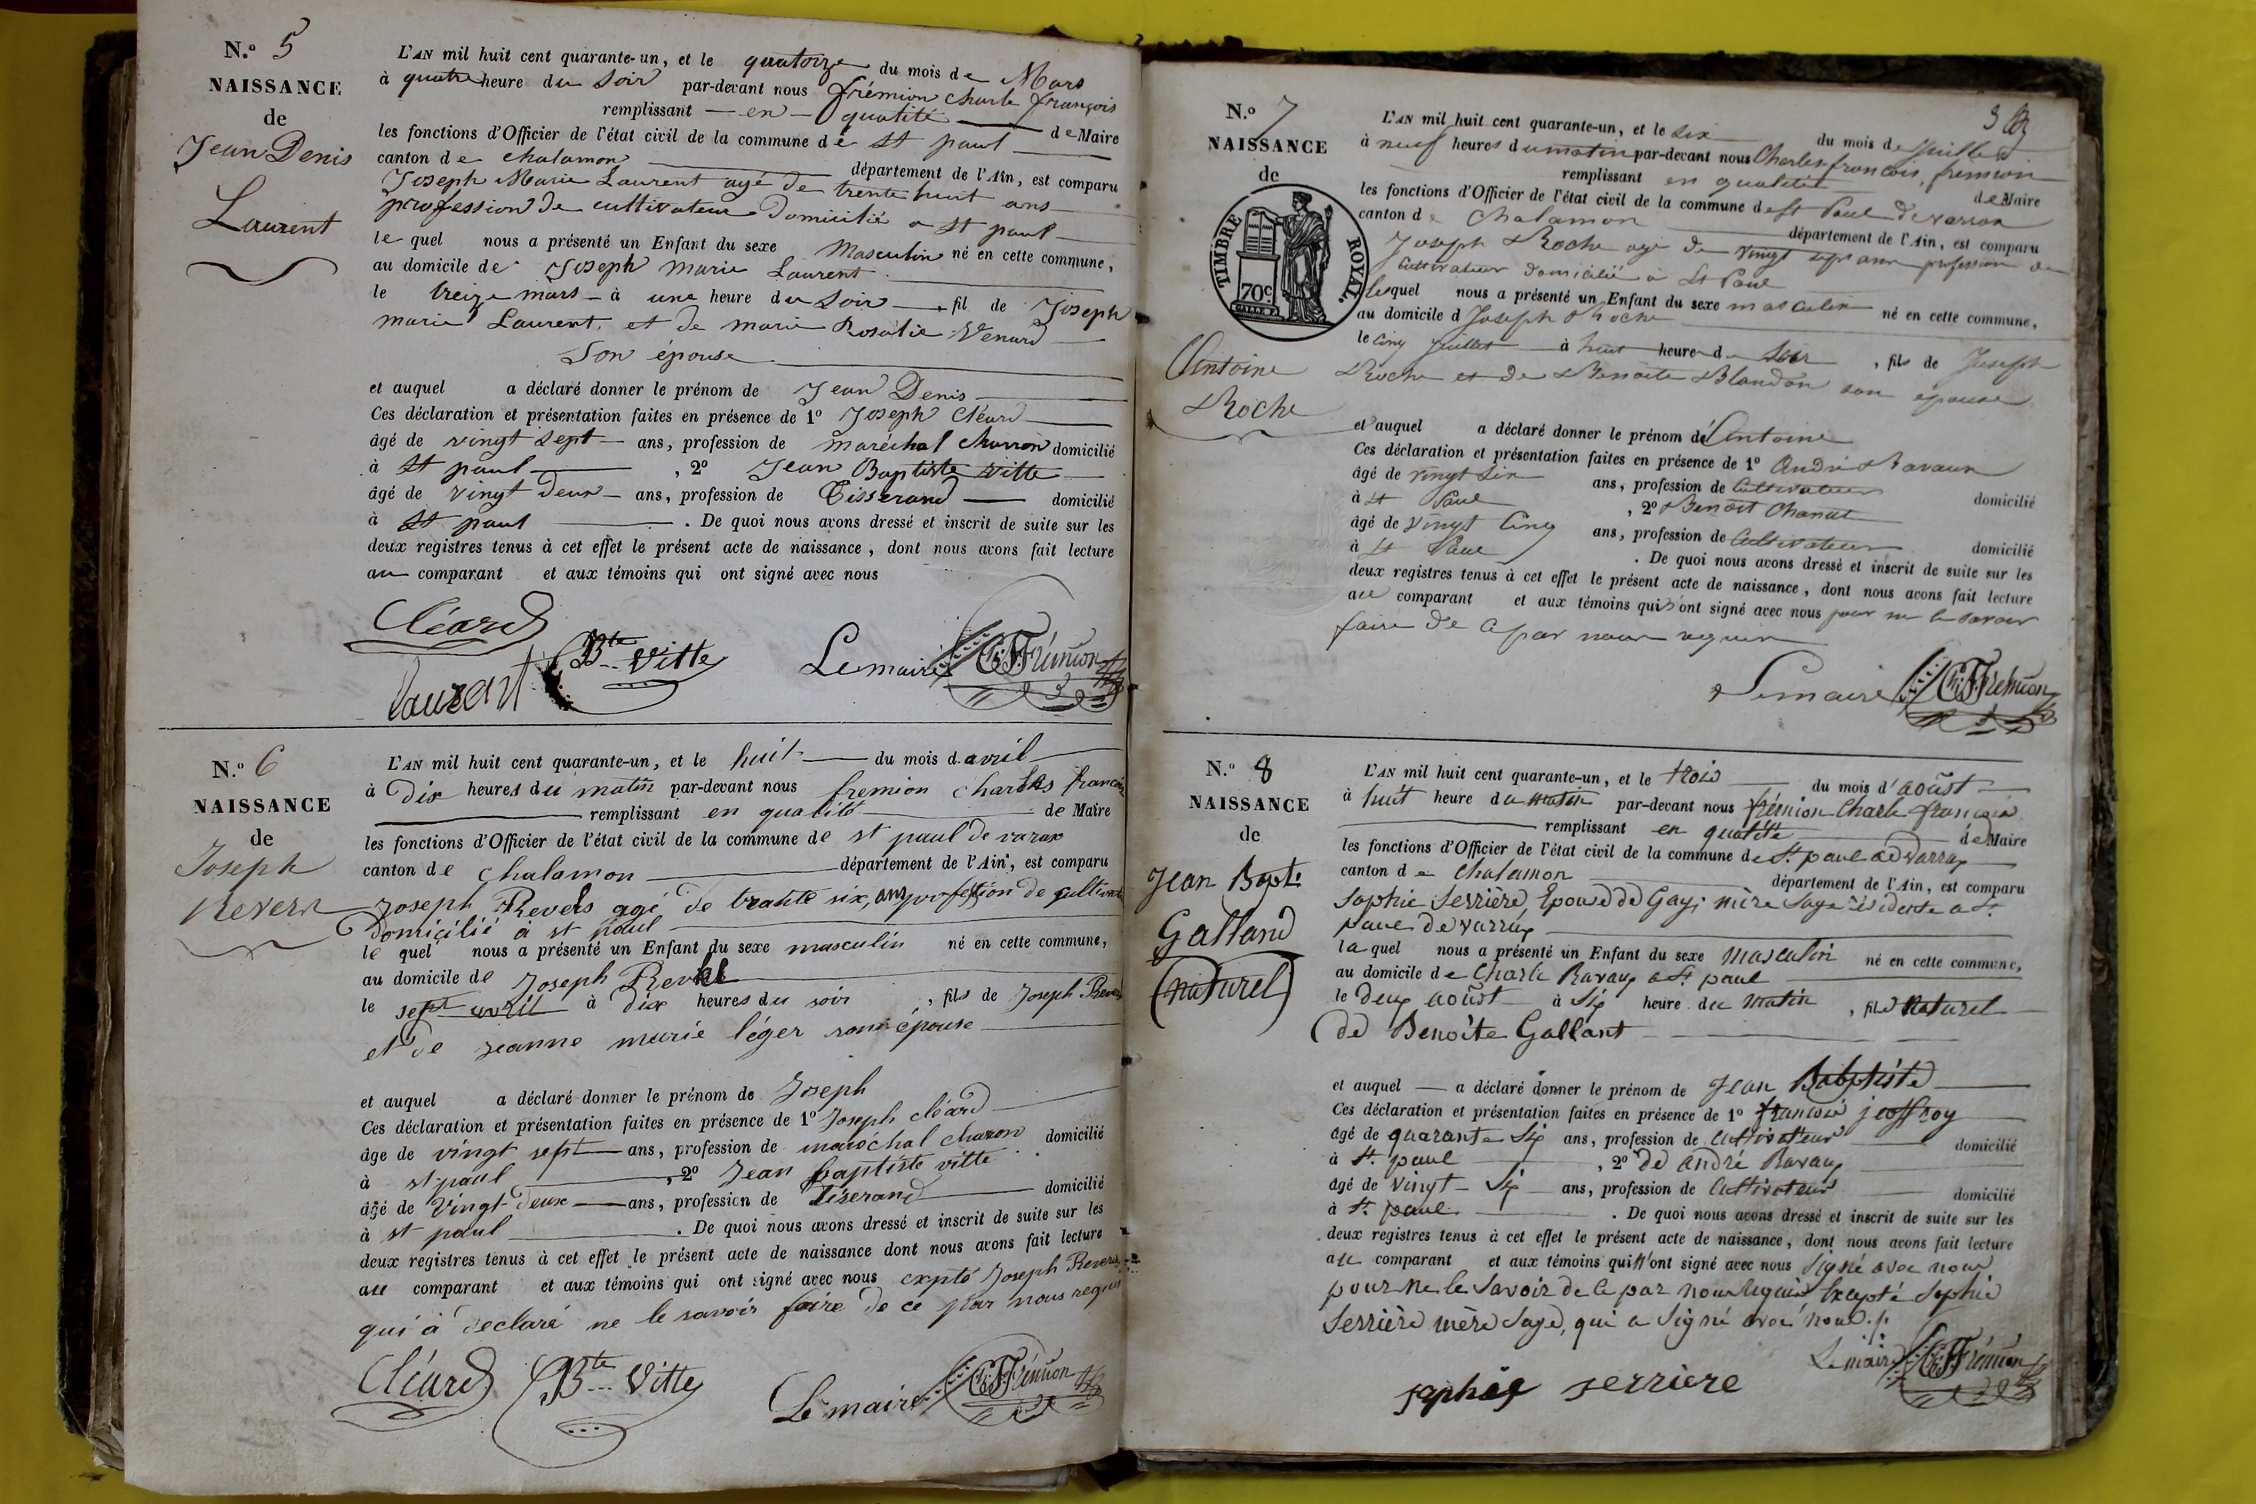 N.º 5
NAISSANCE
de
Jean Denis
Laurent
L'AN mil huit cent quarante-un, et le quatorze du mois de Mars
à quatre heure du Soir par-devant nous frémion charle françois
remplissant en qualité de Maire
les fonctions d'Officier de l'état civil de la commune de St paul
canton de chalamon département de l'Ain, est comparu
Joseph Marie Laurent agé de trente huit ans
profession de cultivateur Domicilié a St paul
le quel nous a présenté un Enfant du sexe Masculin né en cette commune,
au domicile de Joseph marie Laurent
le treize mars à une heure du Soir, fil de Joseph
marie Laurent, et de marie Rosalie Venard
Son épouse
et auquel a déclaré donner le prénom de Jean Denis
Ces déclaration et présentation faites en présence de 1º Joseph Cléard
âgé de vingt Sept ans, profession de maréchal charron domicilié
à St paul, 2º Jean Baptiste vitte
âgé de vingt deux ans, profession de Tisserand domicilié
à St paul. De quoi nous avons dressé et inscrit de suite sur les
deux registres tenus à cet effet le présent acte de naissance, dont nous avons fait lecture
au comparant et aux témoins qui ont signé avec nous
Cléard
Bte Vitte
Laurent
Le maire CF Frémion
N.º 6
NAISSANCE
de
Joseph
Revers
L'AN mil huit cent quarante-un, et le huit du mois d avril
à Dix heures du matin par-devant nous fremion charles francois
remplissant en qualité de Maire
les fonctions d'Officier de l'état civil de la commune de st paul de varax
canton de chalamon département de l'Ain, est comparu
Joseph Revers agé de trante six, ans profession de cultivateur
Domicilié à st paul
le quel nous a présenté un Enfant du sexe masculin né en cette commune,
au domicile de Joseph Revel
le sept avril à dix heures du soir, fils de Joseph Revers
et de jeanne marie léger son épouse
et auquel a déclaré donner le prénom de Joseph
Ces déclaration et présentation faites en présence de 1º Joseph cléard
âge de vingt sept ans, profession de maréchal charon domicilié
à st paul, 2º Jean baptiste vitte
âgé de vingt deux ans, profession de tiserand domicilié
à st paul. De quoi nous avons dressé et inscrit de suite sur les
deux registres tenus à cet effet le présent acte de naissance dont nous avons fait lecture
au comparant et aux témoins qui ont signé avec nous expté Joseph Revers
qui à declaré ne le savoir faire de ce par nous requis
Cléard
Bte Vitte
Le maire CF Frémion
N.º 7
NAISSANCE
de
TIMBRE ROYAL.
70c.
Antoine
Roche
3
L'AN mil huit cent quarante-un, et le six du mois de juillet
à neuf heures du matin par-devant nous Charles francois, fremion
remplissant en qualité de Maire
les fonctions d'Officier de l'état civil de la commune de St Paul de varax
canton de Chalamon département de l'Ain, est comparu
Joseph Roche agé de vingt sept ans profession de
Cultivateur domicilié à St Paul
lequel nous a présenté un Enfant du sexe masculin né en cette commune,
au domicile d Joseph Roche
le cinq juillet à huit heure du Soir, fils de Joseph
Roche et de Benoite Blandon son épouse
et auquel a déclaré donner le prénom de Antoine
Ces déclaration et présentation faites en présence de 1º André Ravaux
âgé de vingt Six ans, profession de Cultivateur domicilié
à St Paul, 2º Benoit Chanut
âgé de vingt Cinq ans, profession de Cultivateur domicilié
à St Paul. De quoi nous avons dressé et inscrit de suite sur les
deux registres tenus à cet effet le présent acte de naissance, dont nous avons fait lecture
au comparant et aux témoins qui n'ont signé avec nous pour ne le savoir
faire de ce par nous requis
Le maire CF Frémion
N.º 8
NAISSANCE
de
Jean Bapte
Galland
(naturel)
L'AN mil huit cent quarante-un, et le trois du mois d'août
à huit heure du matin par-devant nous frémion Charle francois
remplissant en qualité de Maire
les fonctions d'Officier de l'état civil de la commune de St. paul de varrax
canton de Chalamon département de l'Ain, est comparu
Sophie Serrière, Epouse de Gay, mère Sage résidente a St.
paul de varrax
la quel nous a présenté un Enfant du sexe masculin né en cette commune,
au domicile de Charle Ravaux a St. paul
le deux août à Six heure du matin, fils naturel
de Benoite Gallant
et auquel a déclaré donner le prénom de Jean Babptiste
Ces déclaration et présentation faites en présence de 1º francois jeoffroy
âgé de quarante Six ans, profession de Cultivateur domicilié
à St. paul, 2º de andré Ravaux
âgé de vingt Six ans, profession de Cultivateur domicilié
à St. paul. De quoi nous avons dressé et inscrit de suite sur les
deux registres tenus à cet effet le présent acte de naissance, dont nous avons fait lecture
au comparant et aux témoins qui n'ont signé avec nous Signé avec nous
pour ne le Savoir de ce par nous requis Excepté Sophie
Serrière mère Sage, qui a Signé avec nous
Le maire CF Frémion
sophie serriere